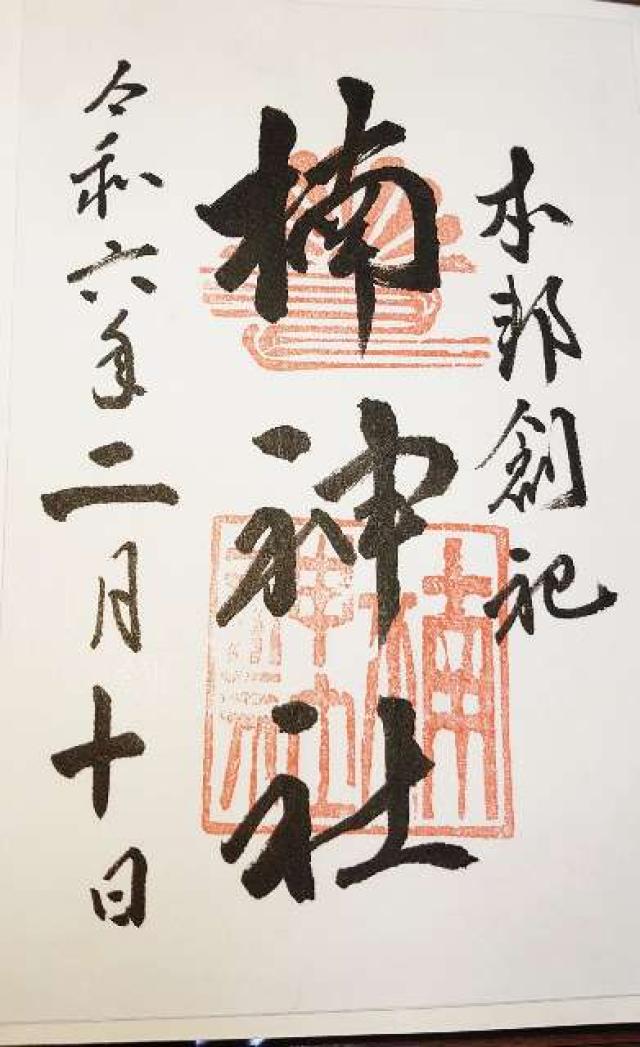 本邦創祀
楠神社
令和六年二月十日